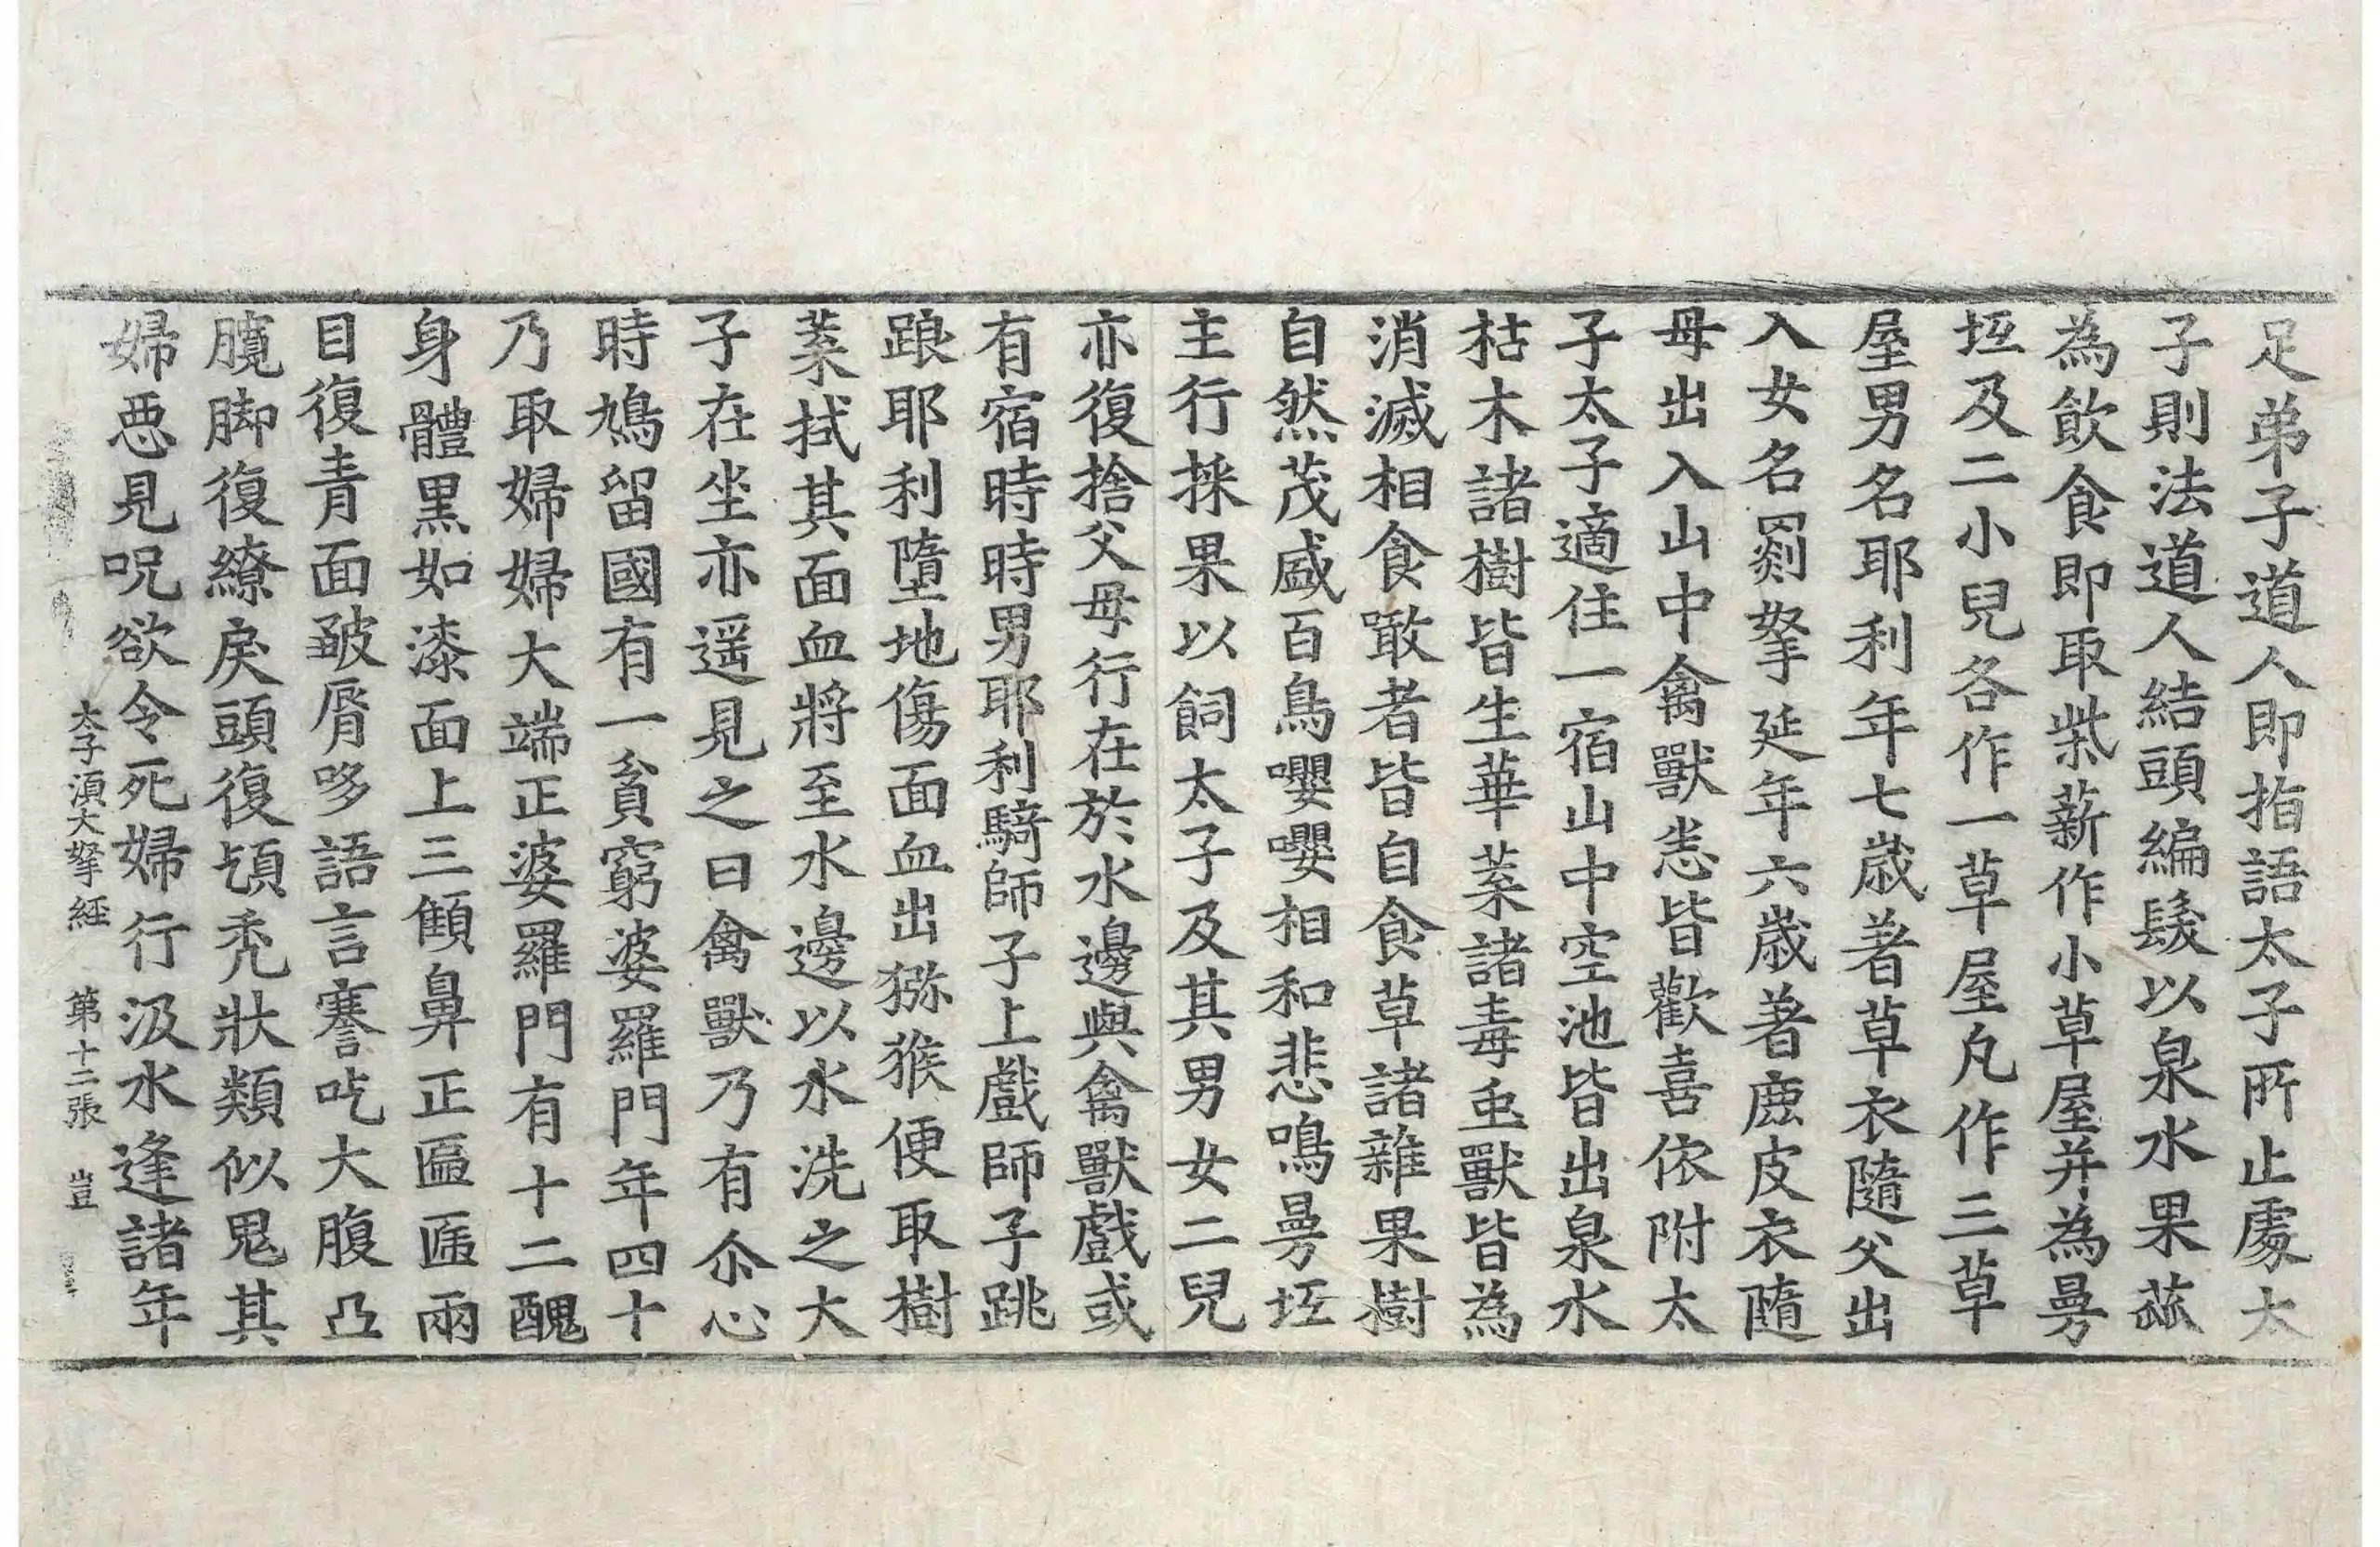 足弟子道人即指語太子所止處太
子則法道人結頭編髮以泉水果蓏
為飲食即取柴薪作小草屋并為曼
坻及二小兒各作一草屋凡作三草
屋男名耶利年七歲著草衣隨父出
入女名罽拏延年六歲著鹿皮衣隨
母出入山中禽獸恙皆歡喜依附太
子太子適住一宿山中空池皆出泉水
枯木諸樹皆生華菜諸毒虫獸皆為
消滅相食噉者皆自食草諸雜果樹
自然茂盛百鳥嚶嚶相和悲鳴曼坻
主行採果以飼太子及其男女二兒
亦復捨父母行在於水邊與禽獸戲或
有宿時時男耶利騎師子上戲師子跳
踉耶利墮地傷面血出猕猴便取樹
葉拭其面血將至水邊以水洗之大
子在坐亦遥見之曰禽獸乃有尒心
時鳩留國有一貧窮婆羅門年四十
乃取婦婦大端正婆羅門有十二醜
身體黑如漆面上三顀鼻正匾㔸兩
目復青面皺脣哆語言謇吃大腹凸
臗脚復繚戾頭復䪴秃狀類似鬼其
婦惡見呪欲令死婦行汲水逢諸年
太子湏大拏経 第十二張 豈